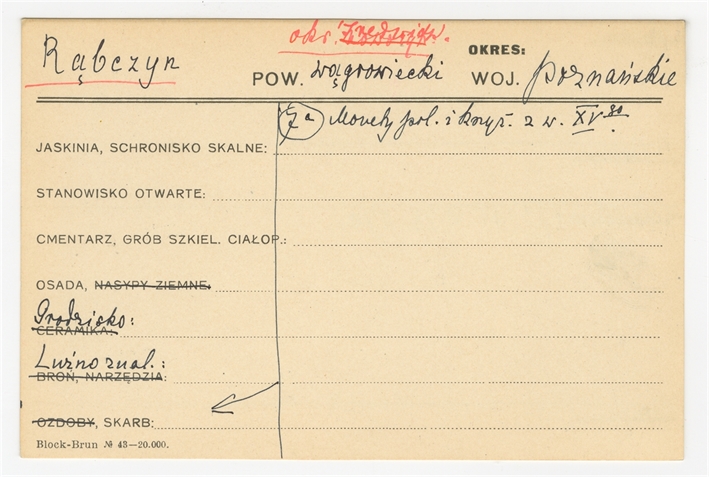 Rąbczyn
okr.
OKRES:
POW. wągrowiecki WOJ. poznańskie
7a Monety pol. i krzyż. z w. XV go
JASKINIA, SCHRONISKO SKALNE:
STANOWISKO OTWARTE:
CMENTARZ, GRÓB SZKIEL. CIAŁOP.:
OSADA, NASYPY ZIEMNE.
Grodzisko:
CERAMIKA:
Luźno znal.:
BROŃ, NARZĘDZIA:
OZDOBY, SKARB:
Block-Brun № 43—20.000.